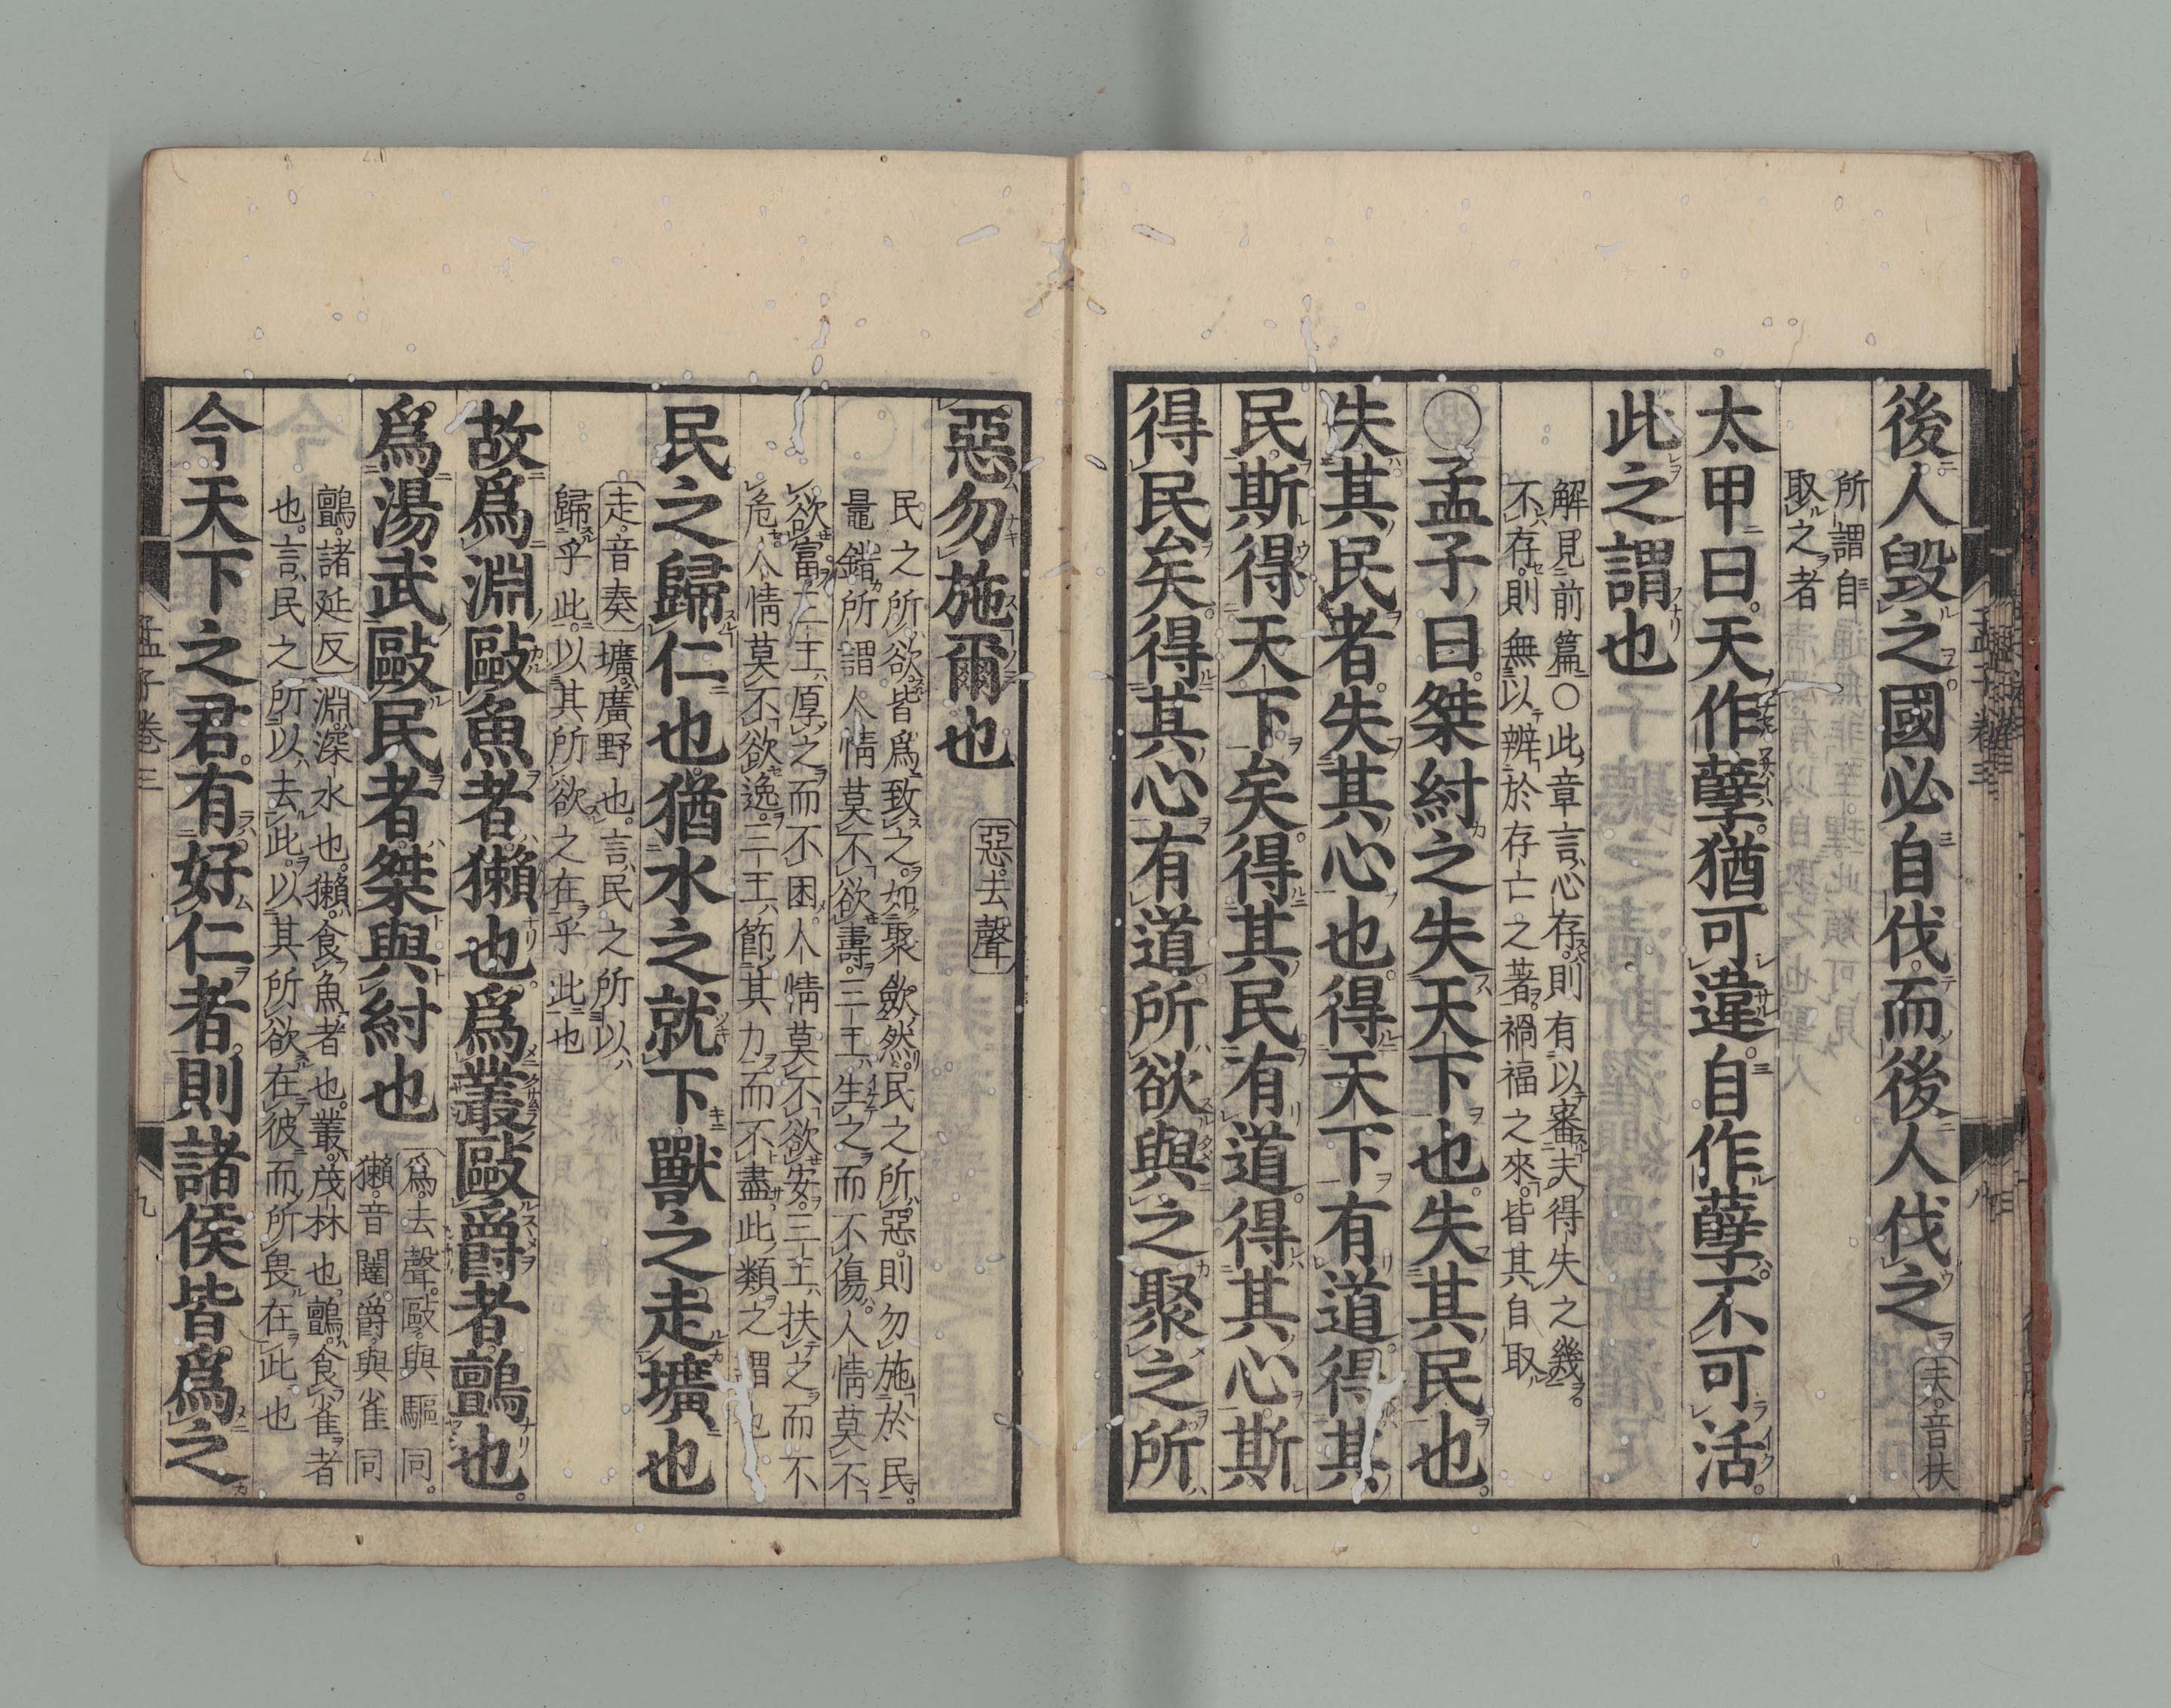 後人毀之國必自伐而後人伐之 夫音扶
所謂自
取之者
太甲曰天作孽猶可違自作孽不可活
此之謂也
解見前篇○此章言心存則有以審夫得失之幾
不存則無以辨於存亡之著禍福之來皆其自取
○孟子曰桀紂之失天下也失其民也
失其民者失其心也得天下有道得其
民斯得天下矣得其民有道得其心斯
得民矣得其心有道所欲與之聚之所
惡勿施爾也 惡去聲
民之所欲皆爲致之如聚斂然民之所惡則勿施於民
鼂錯所謂人情莫不欲壽三王生之而不傷人情莫不
欲富三王厚之而不困人情莫不欲安三王扶之而不
危人情莫不欲逸三王節其力而不盡此類之謂也
民之歸仁也猶水之就下獸之走壙也
走音奏 壙廣野也言民之所以
歸乎此以其所欲之在乎此也
故爲淵敺魚者獺也爲叢敺爵者鸇也
爲湯武敺民者桀與紂也
爲去聲敺與驅同
獺音闥爵與雀同
鸇諸延反 淵深水也獺食魚者也叢茂林也鸇食雀者
也言民之所以去此以其所欲在彼而所畏在此也
今天下之君有好仁者則諸侯皆爲之
孟子卷三
九